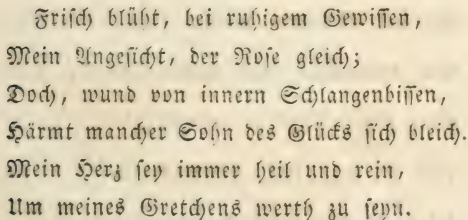 Frisch blüht, bei ruhigem Gewissen,
Mein Angesicht, der Rose gleich;
Doch, wund von innern Schlangenbissen,
Härmt mancher Sohn des Glücks sich bleich.
Mein Herz sey immer heil und rein,
Um meines Gretchens werth zu seyn.